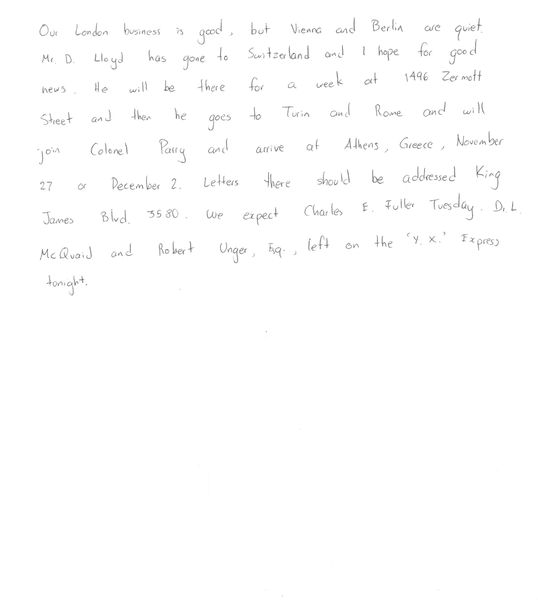 Our London business is good, but Vienna and Berlin are quiet.
Mr. D. Lloyd has gone to Switzerland and I hope for good
news. He will be there for a week at 1496 Zermott
Street and then he goes to Turin and Rome and will
join Colonel Parry and arrive at Athens, Greece, November
27 or December 2. Letters there should be addressed King
James Blvd. 3580. We expect Charles E. Fuller Tuesday. Dr. L.
McQuaid and Robert Unger, Esq., left on the 'Y. X.' Express
tonight.